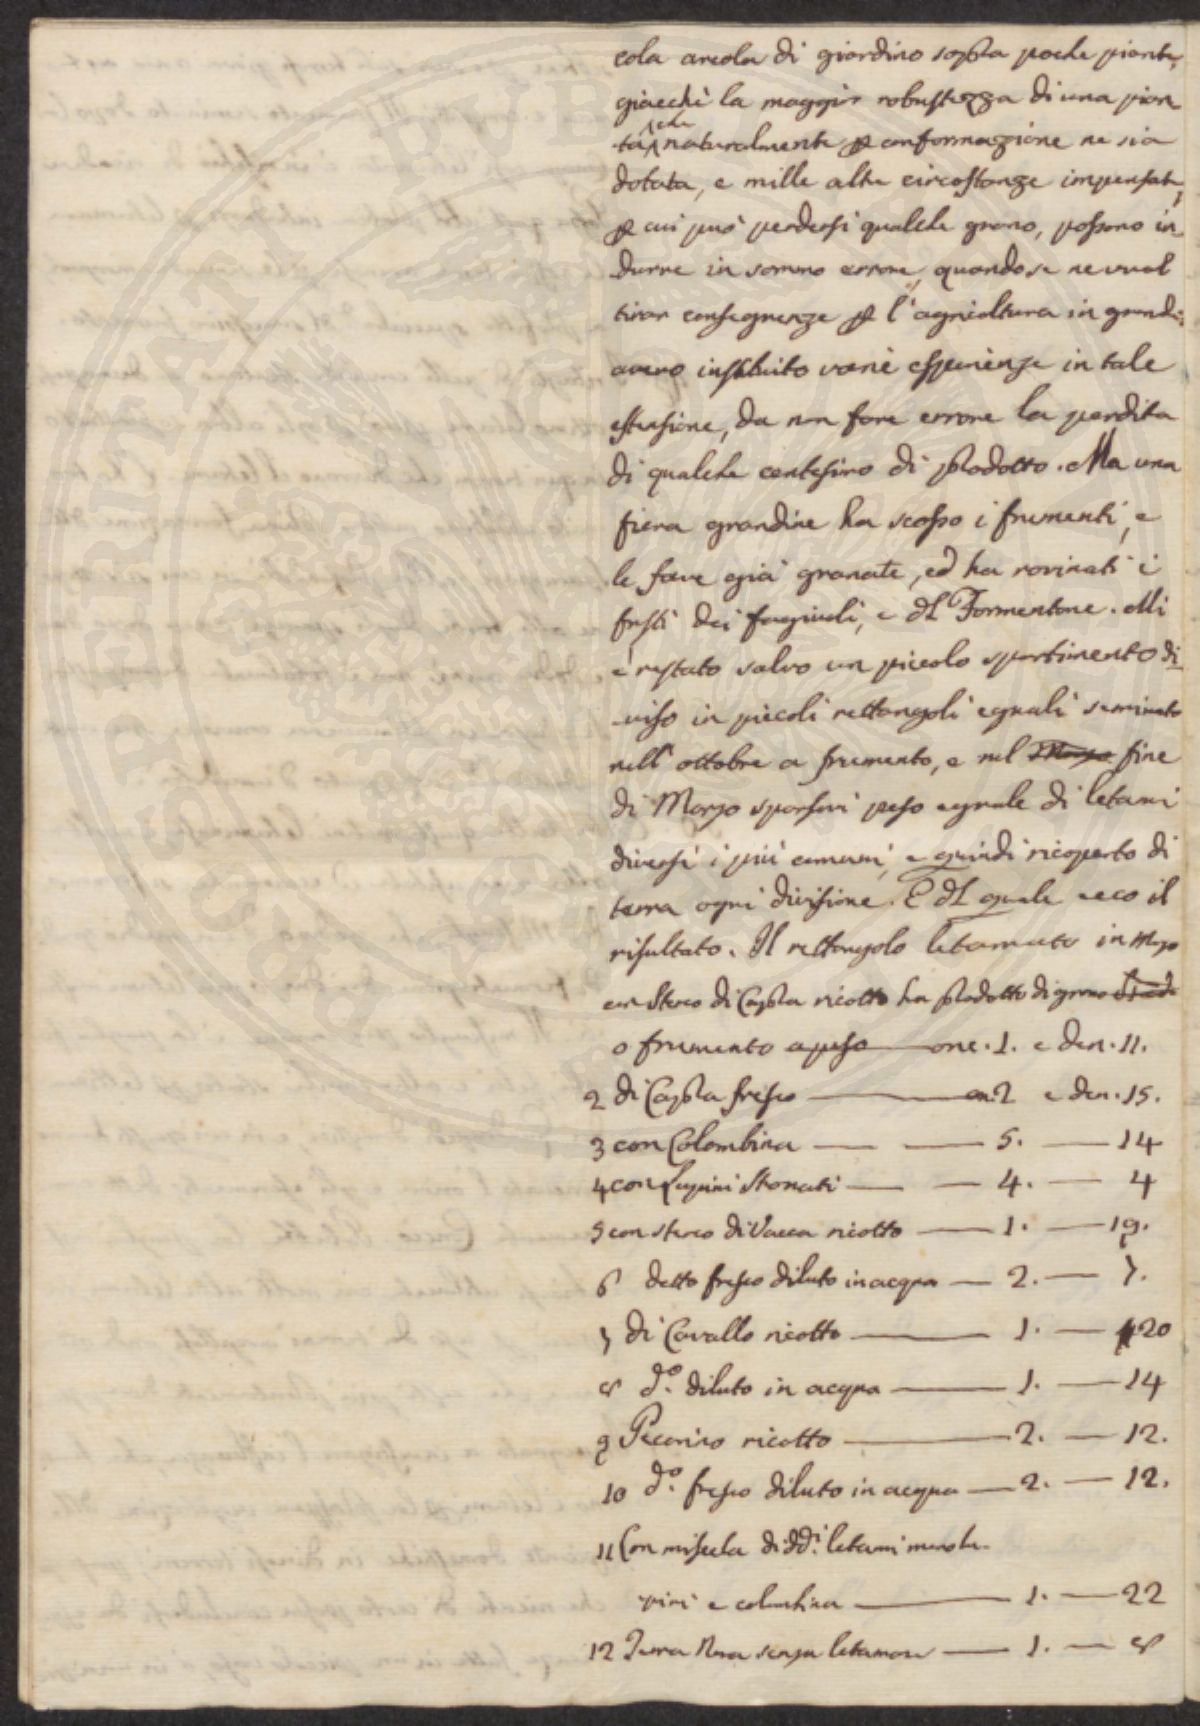 cola areola di giardino sopra poche piante,
giacchè la maggior robustezza di una pian
ta che naturalmente p conformazione ne sia
dotata, e mille altre circostanze impensate,
p cui può perdersi qualche grano, possono in
durre in sommo errore, quando se ne vuol
tirar conseguenze p l'agricoltura in grande;
avevo instituito varie esperienze in tale
estensione, da non fare errore la perdita
di qualche centesimo di prodotto. Ma una
fiera grandine ha scosso i frumenti, e
le fave già granate, ed ha rovinati i
fusti dei fagiuoli, e del Formentone. Mi
è restato salvo un piccolo spartimento di
viso in piccoli rettangoli eguali seminato
nell'ottobre a frumento, e nel Marzo fine
di Marzo sparsovi peso eguale di letami
diversi i più comuni, e quindi ricoperto di
terra ogni divisione. E del quale ecco il
risultato. Il rettangolo letamato in Marzo
con Sterco di Capra ricotto ha prodotto di grano
o frumento a peso — onc. 1. e den. 11.
2 di Capra fresco — on. 2 e den. 15.
3 con Colombina — — 5. — 14
4 con Lupini Stonati — — 4. — 4
5 con sterco di Vacca ricotto — 1. — 19.
6 detto fresco diluto in acqua — 2. — 7.
7 di Cavallo ricotto — 1. — 20
8 d.o diluto in acqua — 1. — 14
9 Pecorino ricotto — 2. — 12.
10 d.o fresco diluto in acqua — 2. — 12.
11 Con miscela di dd.i letami meno lu-
pini e colombina — 1. — 22
12 Terra Nera senza letamare — 1. — 8